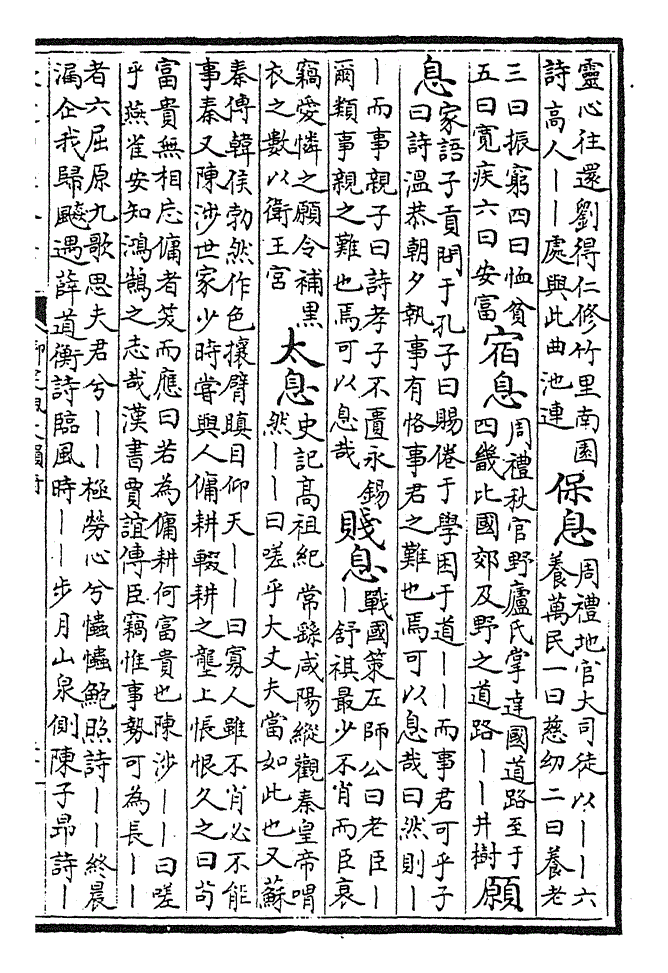 靈心往還劉得仁修竹里南園
詩高人——處與此曲池連
保息
周禮地官大司徒以——六
養萬民一曰慈幼二曰養老
三曰振窮四曰恤貧
五曰寬疾六曰安富
宿息
周禮秋官野廬氏掌達國道路至于
四畿比國郊及野之道路——井樹
願
息
家語子貢問于孔子曰賜倦于學困于道——而事君可乎子
曰詩溫恭朝夕執事有恪事君之難也焉可以息哉曰然則—
—而事親子曰詩孝子不匱永錫
爾類事親之難也焉可以息哉
賤息
戰國策左師公曰老臣—
—舒祺最少不肖而臣衰
竊愛憐之願令補黑
衣之數以衛王宮
太息
史記高祖紀常繇咸陽縱觀秦皇帝喟
然——曰嗟乎大丈夫當如此也又蘇
秦傳韓侯勃然作色攘臂瞋目仰天——曰寡人雖不肖必不能
事秦又陳涉世家少時嘗與人傭耕輟耕之壟上悵恨久之曰茍
富貴無相忘傭者笑而應曰若為傭耕何富貴也陳涉——曰嗟
乎燕雀安知鴻鵠之志哉漢書賈誼傳臣竊惟事勢可為長——
者六屈原九歌思夫君兮——極勞心兮𢥞𢥞鮑照詩——終晨
漏企我歸飈遇薛道衡詩臨風時——步月山泉側陳子昂詩—